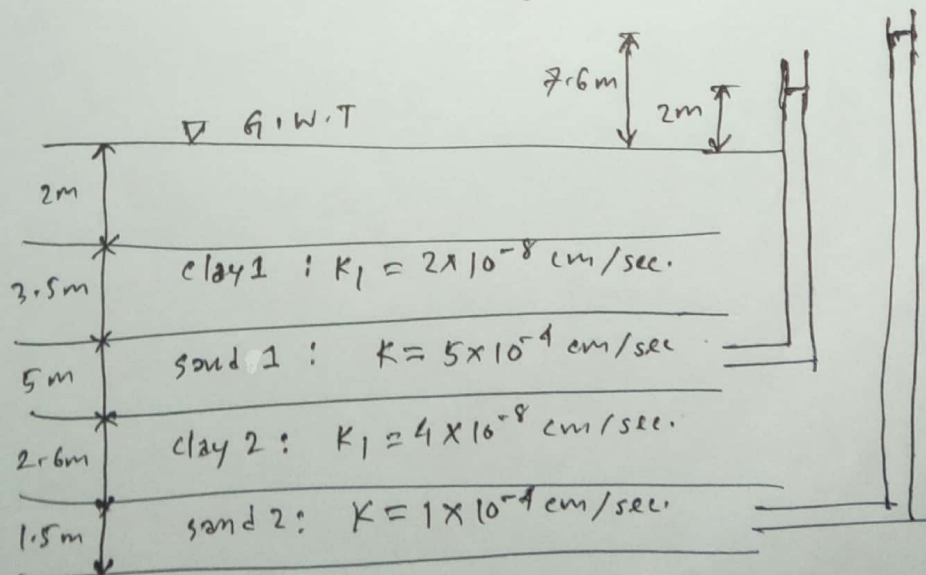 7.6m
2m
▽ G.W.T
2m
3.5m
clay 1 : K₁ = 2×10⁻⁸ cm/sec.
5m
sand 1 : K = 5×10⁻⁴ cm/sec
2.6m
clay 2 : K₁ = 4×10⁻⁸ cm/sec.
1.5m
sand 2 : K = 1×10⁻⁴ cm/sec.